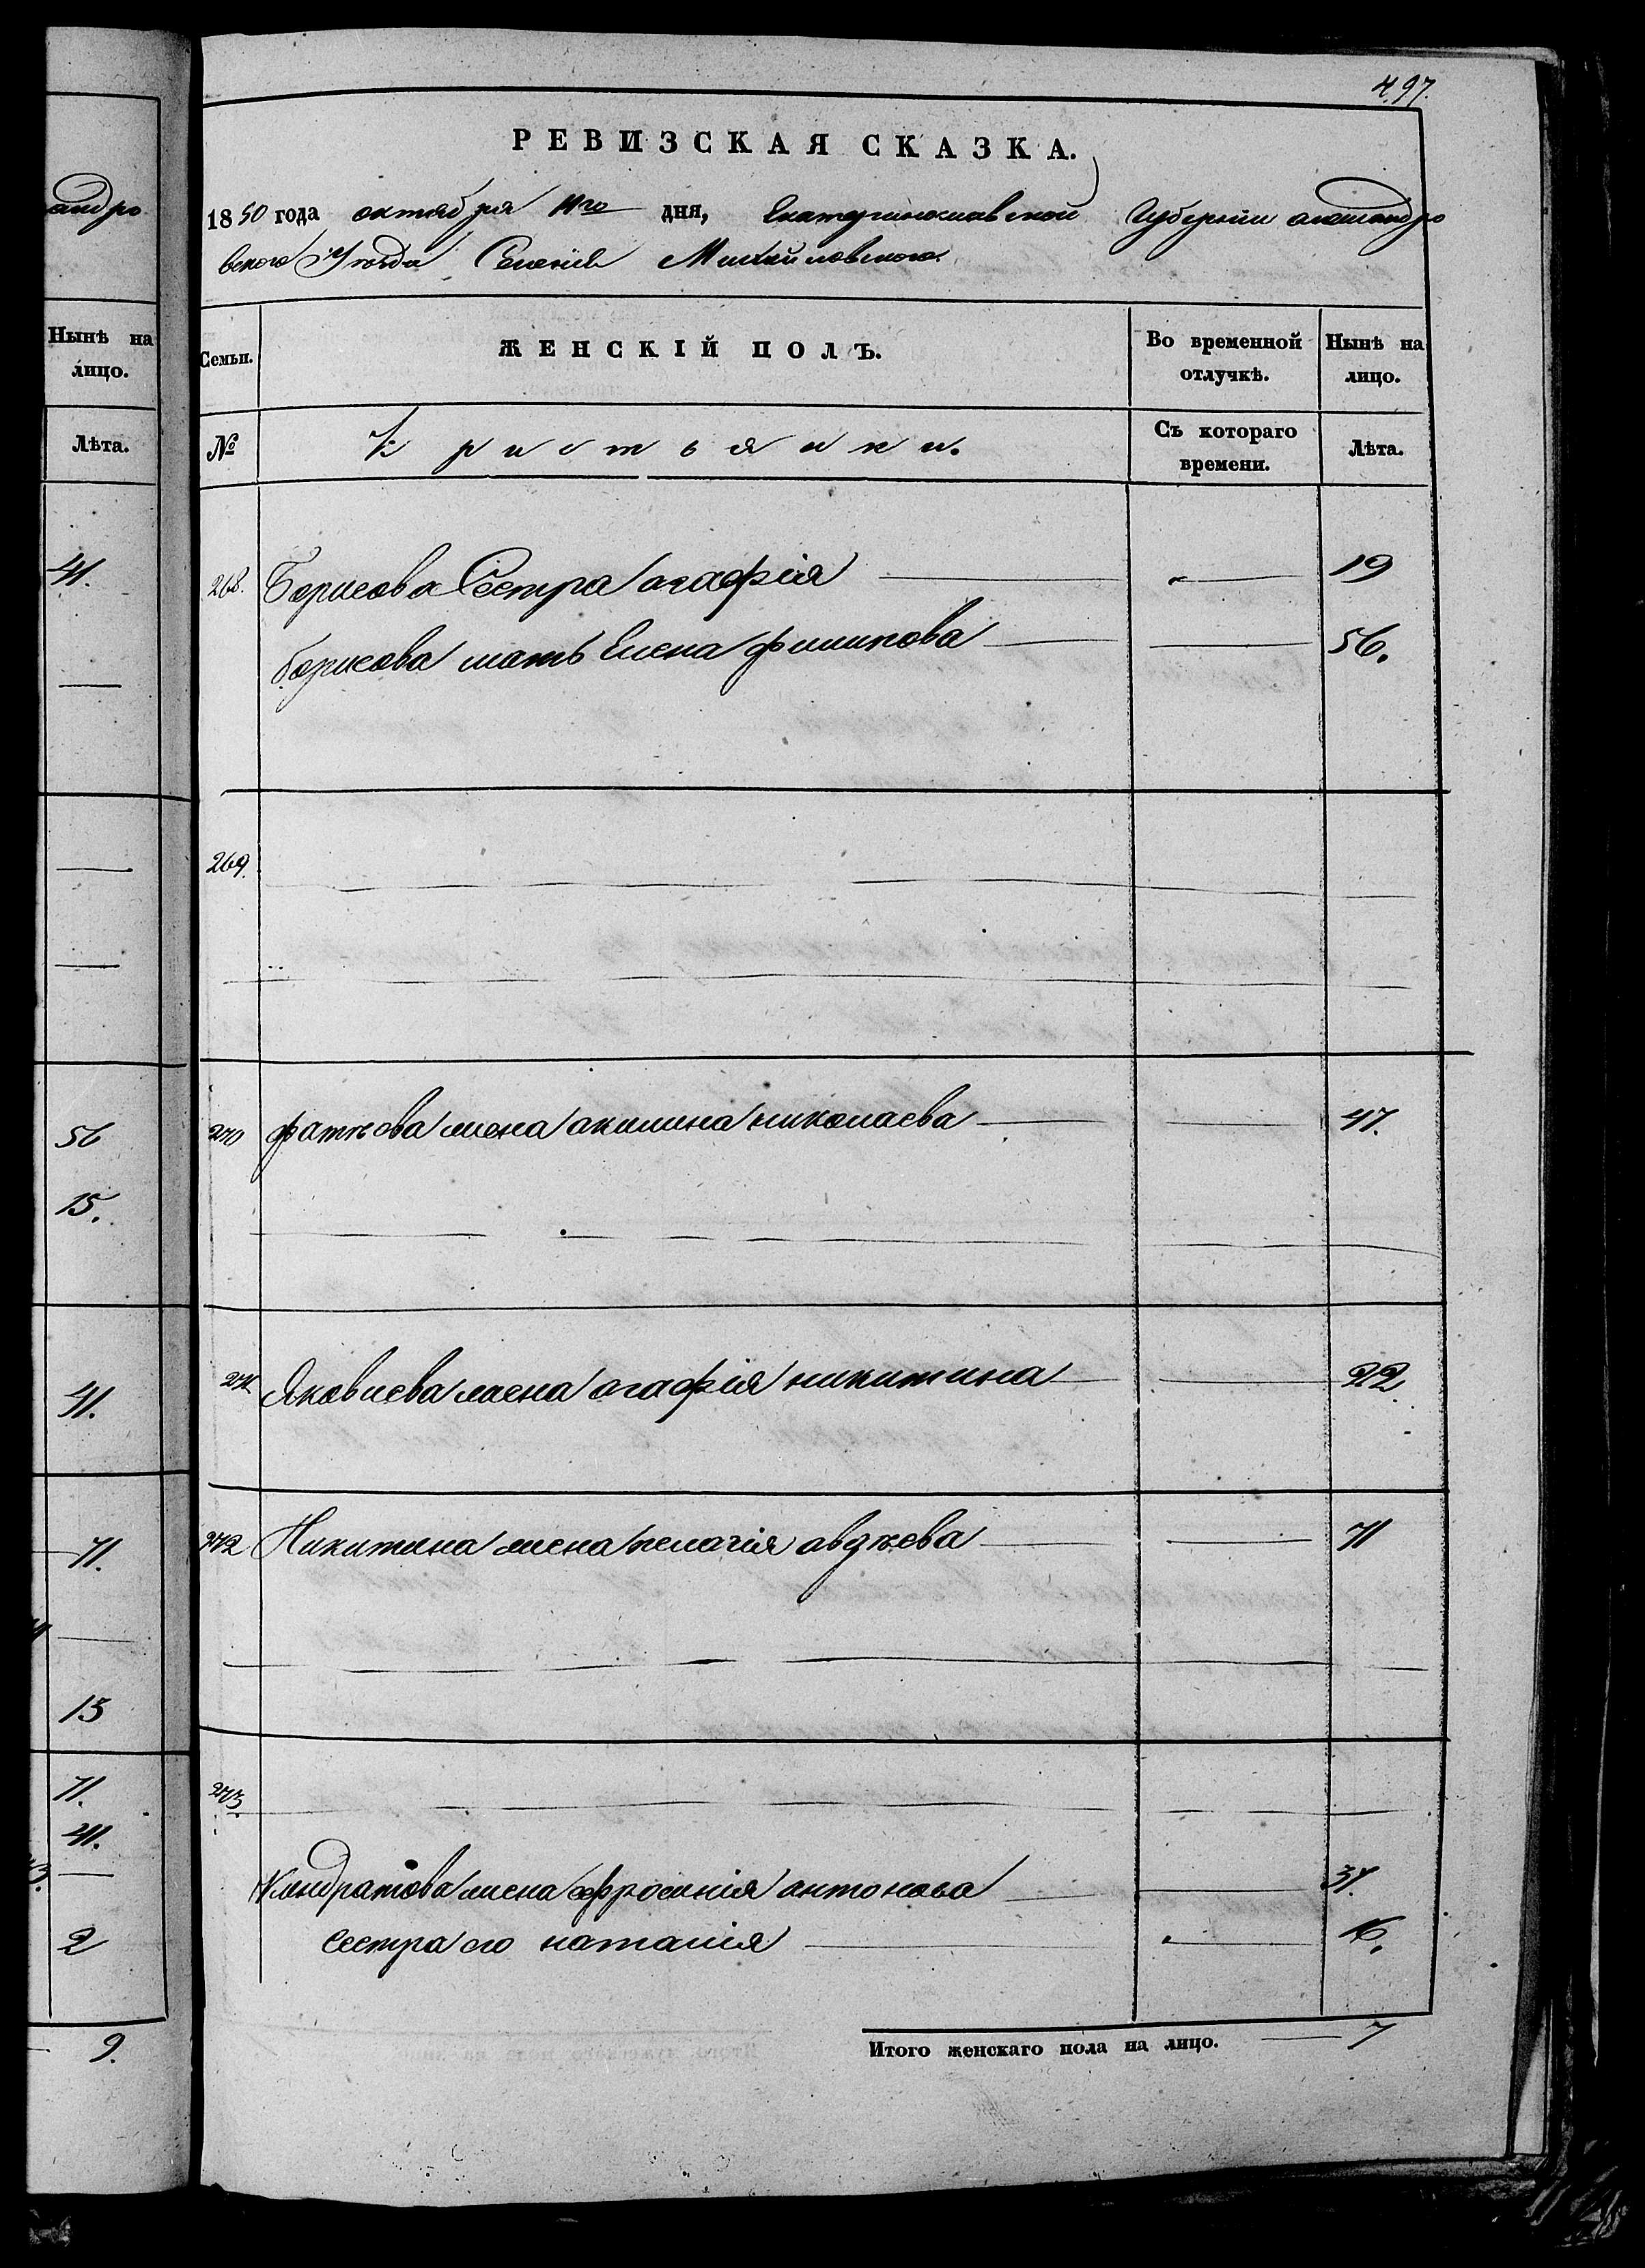 андро
Нынѣ на
лицо.
Лѣта.
41.
56
15.
41.
71.
13
71.
41.
2
9.
497.
РЕВИЗСКАЯ СКАЗКА.
1850 года октября дня, Екатеринославской Губерніи александро
вского Уѣзда Селенія Михайловского
Семьи. ЖЕНСКІЙ ПОЛЪ. Во временной отлучкѣ. Нынѣ на лицо.
№ Кристьянки. Съ котораго времени. Лѣта.
268. Борисова Сестра агафія 19
борисова мать Елена филипова 56.
269.
270 фатѣева жена акилина николаева 47.
271 Яковлева жена агафія никитина 22.
272 Никитина жена пелагія авдѣева 71
273.
Кандратова жена ефросинія антонова 31.
Сестра его наталія 16.
Итого женскаго пола на лицо. 7